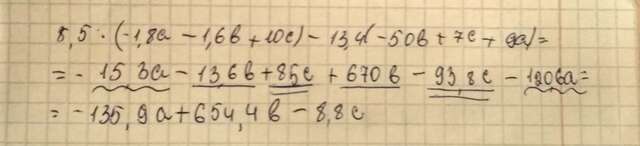 8,5·(-1,8a - 1,6b + 10c) - 13,4(-50b + 7c + 9a) =
= - 15,3a - 13,6b + 85c + 670b - 93,8c - 120,6a =
= - 135,9a + 654,4b - 8,8c